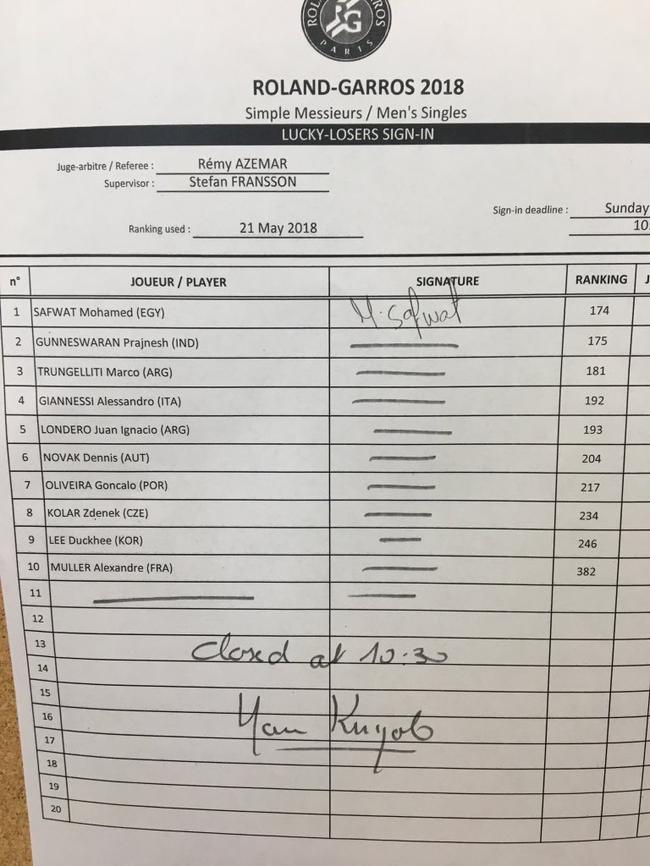 ROLAND-GARROS
PARIS
RG
ROLAND-GARROS 2018
Simple Messieurs / Men's Singles
LUCKY-LOSERS SIGN-IN
Juge-arbitre / Referee : Rémy AZEMAR
Supervisor : Stefan FRANSSON
Sign-in deadline : Sunday
10
Ranking used : 21 May 2018
n° JOUEUR / PLAYER SIGNATURE RANKING J
1 SAFWAT Mohamed (EGY) M. Safwat 174
2 GUNNESWARAN Prajnesh (IND) 175
3 TRUNGELLITI Marco (ARG) 181
4 GIANNESSI Alessandro (ITA) 192
5 LONDERO Juan Ignacio (ARG) 193
6 NOVAK Dennis (AUT) 204
7 OLIVEIRA Goncalo (POR) 217
8 KOLAR Zdenek (CZE) 234
9 LEE Duckhee (KOR) 246
10 MULLER Alexandre (FRA) 382
11
12
13
closed at 10:30
14
15
16
17
18
19
20